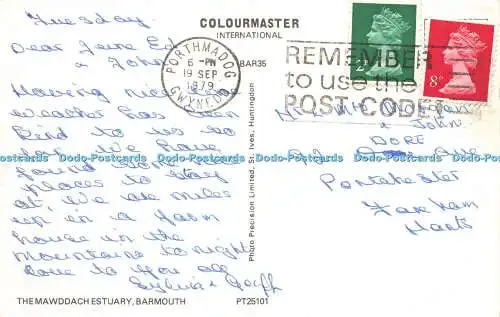 Tuesday
COLOURMASTER
INTERNATIONAL
BAR35
Dear June Ed
& John
PORTHMADOG
6-PM
19 SEP
1979
GWYNEDD
REMEMBER
to use the
POST CODE!
2
8P
Having nice
weather has been
kind to us so
far We have
found nice
places to stay
at. We are miles
up in a farm
house in the
mountains tonight
Love to you all
Sylvia & Geoff
Mr & Mrs
& John
DORE
Ave
Portchester
Fareham
Hants
Photo Precision Limited, St. Ives, Huntingdon
Dodo-Postcards Dodo-Postcards Dodo-Postcards Dodo-Postcards Dodo-Postcards Dodo-Postcards
THE MAWDDACH ESTUARY, BARMOUTH
PT25101